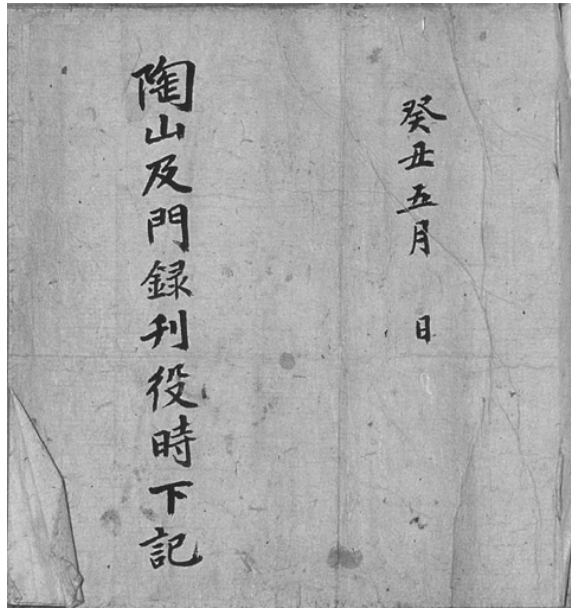 癸丑五月 日
陶山及門録刊役時下記